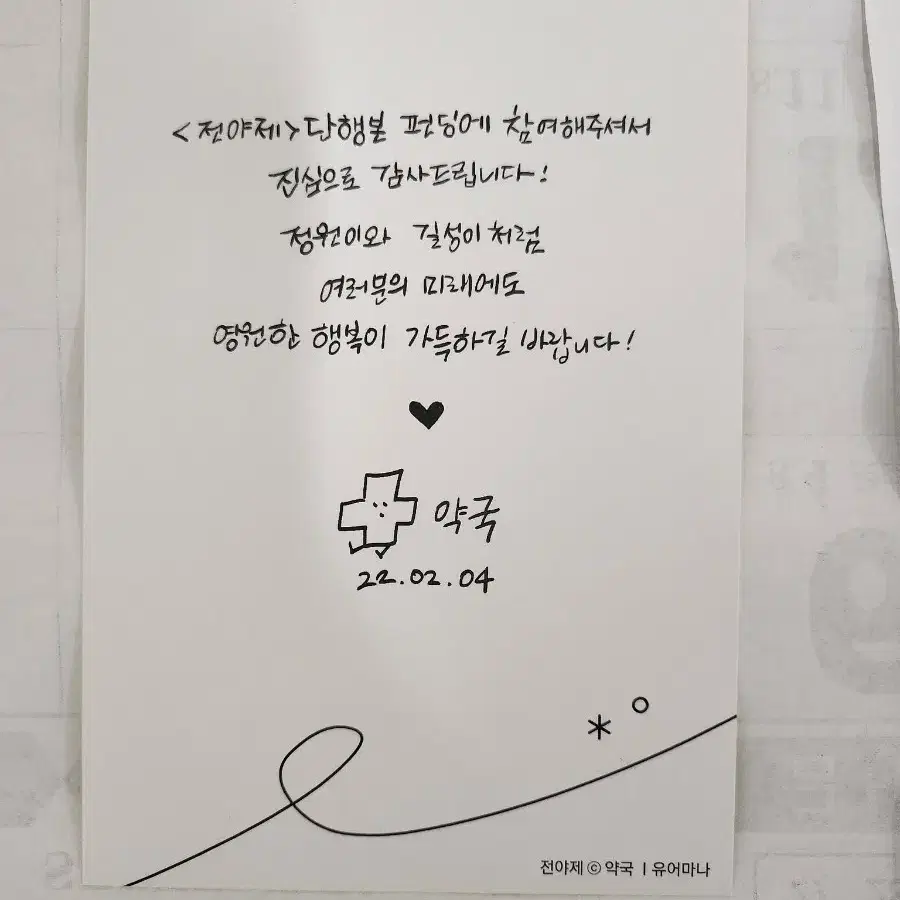 <전야제> 단행본 펀딩에 참여해주셔서
진심으로 감사드립니다!
정원이와 길성이처럼
여러분의 미래에도
영원한 행복이 가득하길 바랍니다!
약국
22.02.04
전야제 ⓒ 약국 ㅣ유어마나